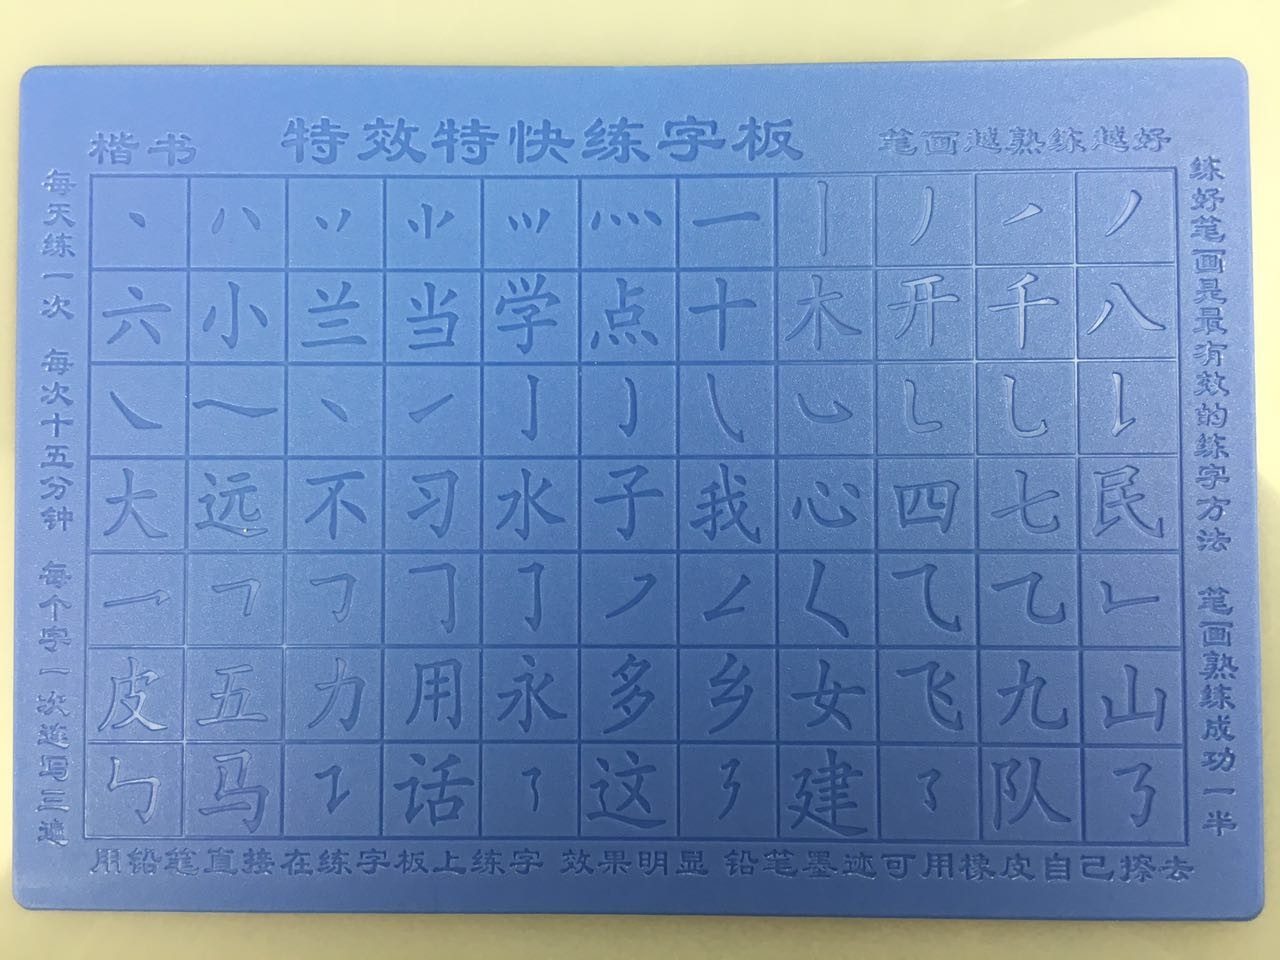 楷书 特效特快练字板 笔画越熟练越好
每天练一次 每次十五分钟 每个字一次连写三遍
六 小 兰 当 学 点 十 木 开 千 八
大 远 不 习 水 子 我 心 四 七 民
皮 五 力 用 永 多 乡 女 飞 九 山
马 话 这 建 队
练好笔画是最有效的练字方法 笔画熟练成功一半
用铅笔直接在练字板上练字 效果明显 铅笔墨迹可用橡皮自己擦去